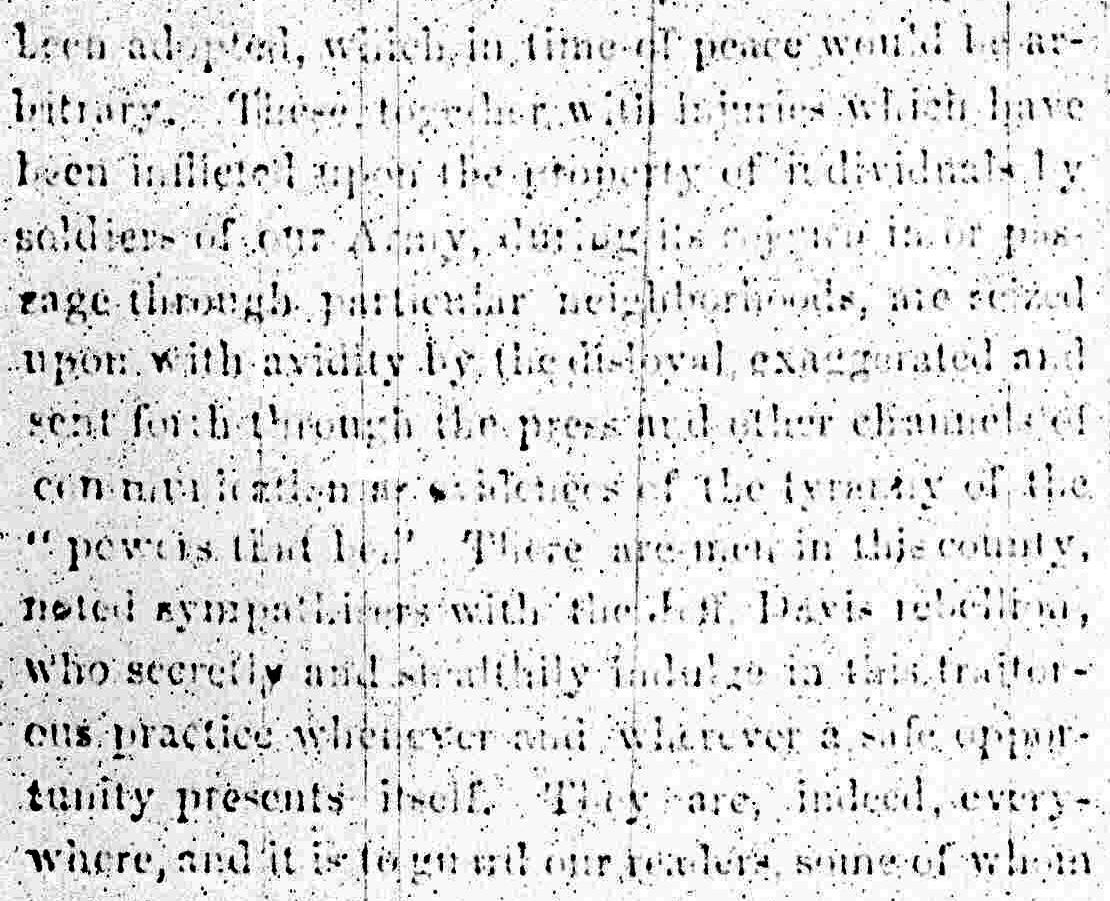 been adopted, which in time of peace would be ar-
bitrary. These, together with injuries which have
been inflicted upon the property of individuals by
soldiers of our Army, during its sojourn in or pas-
sage through particular neighborhoods, are seized
upon with avidity by the disloyal, exaggerated and
sent forth through the press and other channels of
communication as evidences of the tyranny of the
"powers that be." There are men in this county,
noted sympathisers with the Jeff. Davis rebellion,
who secretly and stealthily indulge in this traitor-
ous practice whenever and wherever a safe oppor-
tunity presents itself. They are, indeed, every-
where, and it is to guard our readers, some of whom